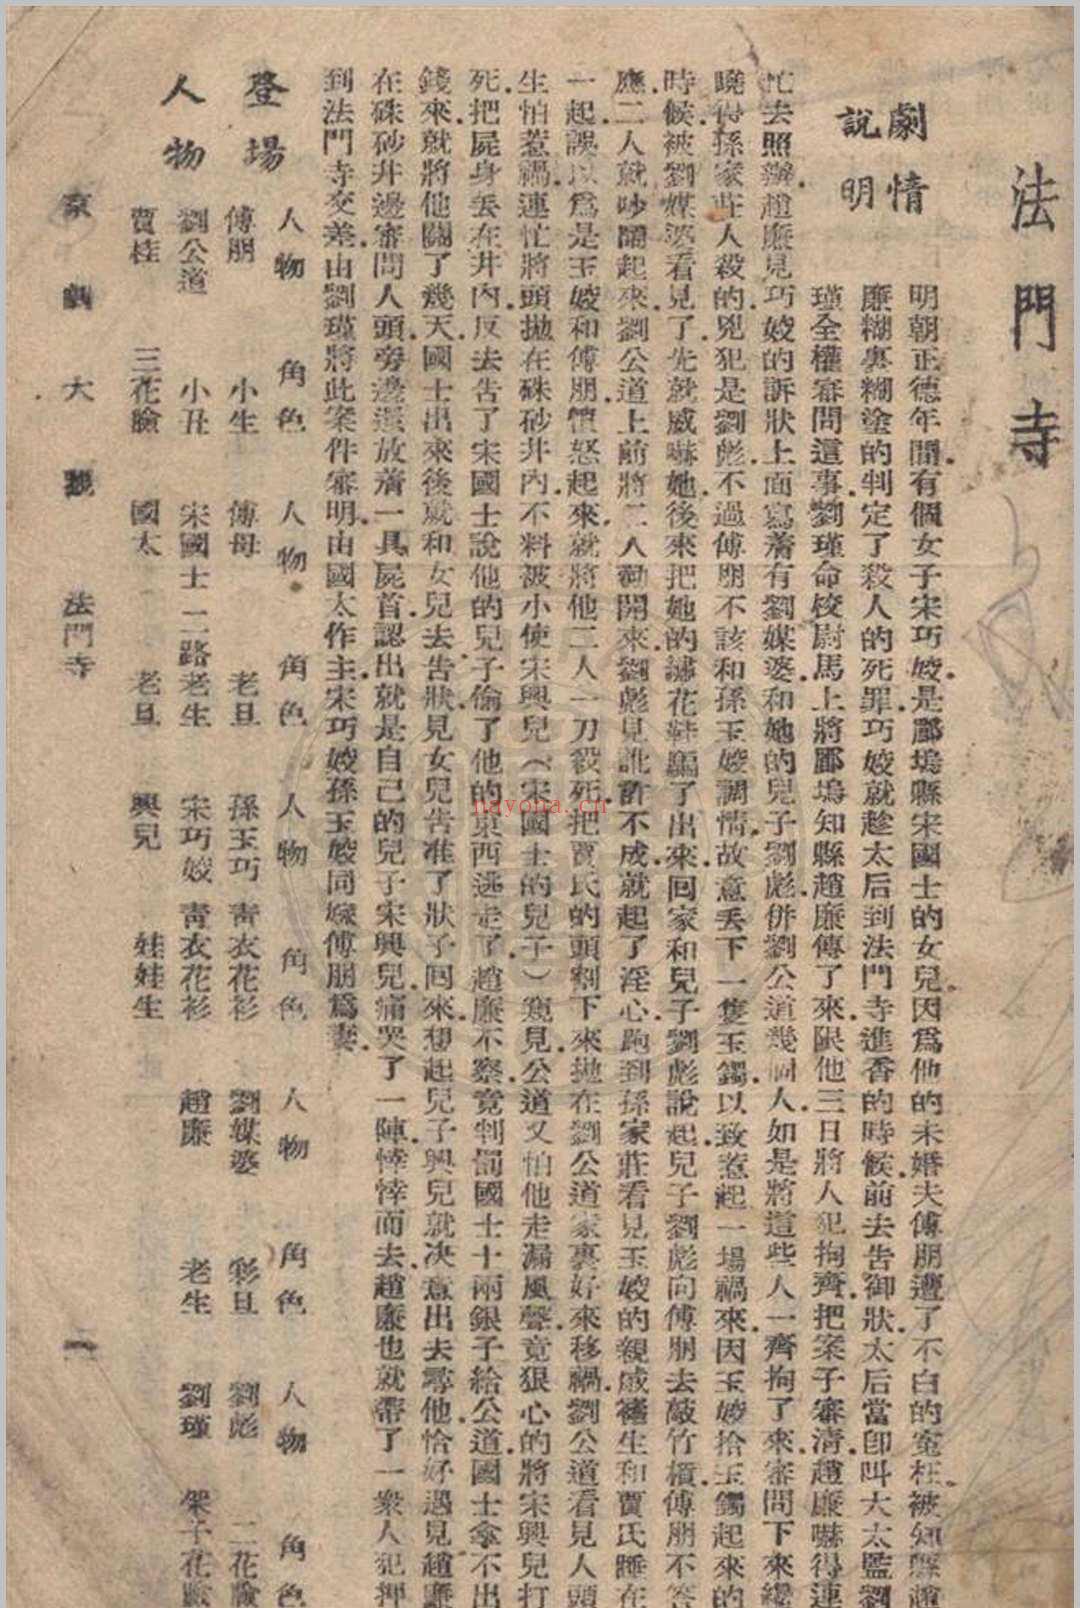 法門寺
劇情
說明
明朝正德年間有個女子宋巧姣是郿塢縣宋國士的女兒因爲他的未婚夫傅朋遭了不白的寃枉被知縣趙
廉糊裏糊塗的判定了殺人的死罪巧姣就趁太后到法門寺進香的時候前去告御狀太后當卽叫大太監劉
瑾全權審問這事劉瑾命校尉馬上將郿塢知縣趙廉傳了來限他三日將人犯拘齊把案子審清趙廉嚇得連
忙去照辦趙廉見巧姣的訴狀上面寫着有劉媒婆和她的兒子劉彪併劉公道幾個人如是將這些人一齊拘了來審問下來纔
曉得孫家莊人殺的兇犯是劉彪不過傅朋不該和孫玉姣調情故意丢下一隻玉鐲以致惹起一場禍來因玉姣拾玉鐲起來的
時候被劉媒婆看見了先就威嚇她後來把她的繡花鞋騙了出來回家和兒子劉彪說起兒子劉彪向傅朋去敲竹槓傅朋不答
應二人就吵鬧起來劉公道上前將二人勸開來劉彪見訛詐不成就起了淫心跑到孫家莊看見玉姣的親戚褚生和賈氏睡在
一起誤以爲是玉姣和傅朋憤怒起來就將他二人一刀殺死把賈氏的頭割下來拋在劉公道家裏好來移禍劉公道看見人頭
生怕惹禍連忙將頭拋在硃砂井內不料被小使宋興兒（宋國士的兒子）窺見公道又怕他走漏風聲竟狠心的將宋興兒打
死把屍身丢在井內反去告了宋國士說他的兒子偷了他的東西逃走了趙廉不察竟判罰國士十兩銀子給公道國士拿不出
錢來就將他關了幾天國士出來後就和女兒去告狀見女兒告准了狀子回來想起兒子興兒就决意出去尋他恰好遇見趙廉
在硃砂井邊審問人頭旁邊還放着一具屍首認出就是自己的兒子宋興兒痛哭了一陣悻悻而去趙廉也就帶了一衆人犯押
到法門寺交差由劉瑾將此案件審明由國太作主宋巧姣孫玉姣同嫁傅朋爲妻
登場
人物
人物 角色 人物 角色 人物 角色 人物 角色 人物 角色
傅朋 小生 傅母 老旦 孫玉巧 靑衣花衫 劉媒婆 彩旦 劉彪 二花臉
劉公道 小丑 宋國士 二路老生 宋巧姣 靑衣花衫 趙廉 老生 劉瑾 架子花臉
賈桂 三花臉 國太 老旦 興兒 娃娃生
京劇大觀 法門寺 一
nayona.cn